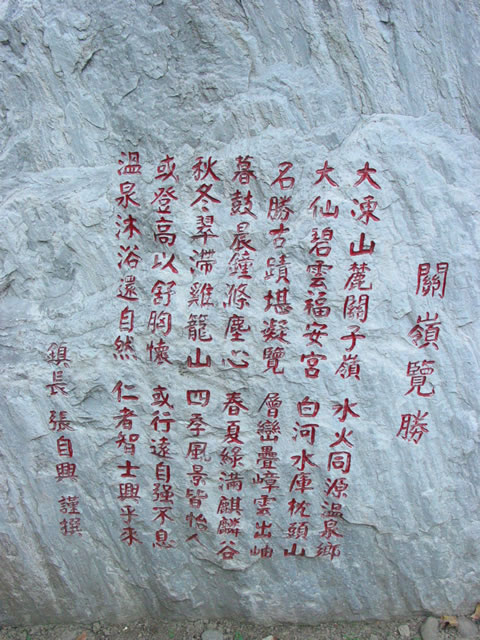 關嶺覽勝
大凍山麓關子嶺 水火同源温泉鄉
大仙碧雲福安宮 白河水庫枕頭山
名勝古蹟堪凝覽 層巒疊嶂雲出岫
暮鼓晨鐘滌塵心 春夏綠滿麒麟谷
秋冬翠滯雞籠山 四季風景皆怡人
或登高以舒胸懷 或行遠自強不息
温泉沐浴還自然 仁者智士興乎來
鎮長 張自興 謹撰